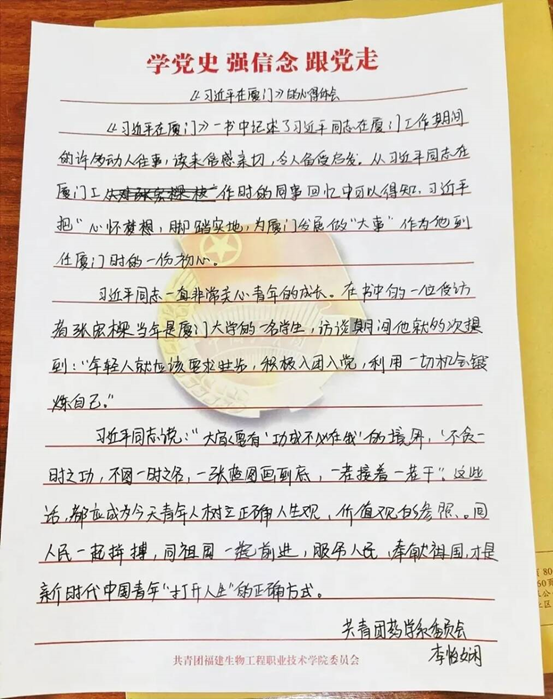 学党史 强信念 跟党走
《习近平在厦门》的心得体会
《习近平在厦门》一书中记述了习近平同志在厦门工作期间
的许多动人往事，读来倍感亲切，令人备受启发。从习近平同志在
厦门工作时的同事回忆中可以得知，习近平
把“心怀梦想，脚踏实地，为厦门发展做“大事”作为他到
任厦门时的一份初心。
习近平同志一直非常关心青年的成长。在书中的一位受访
者张宏樑当年是厦门大学的一名学生，访谈期间他就多次提
到：“年轻人就应该要求进步，积极入团入党，利用一切机会锻
炼自己。”
习近平同志说：“大家要有‘功成不必在我’的境界，‘不贪一
时之功，不图一时之名，一张蓝图画到底，一茬接着一茬干”。这些
话，都应成为今天青年人树立正确人生观，价值观的参照。同
人民一起拼搏，同祖国一起前进，服务人民，奉献祖国，才是
新时代中国青年“打开人生”的正确方式。
共青团药学系委员会
李怡娴
共青团福建生物工程职业技术学院委员会